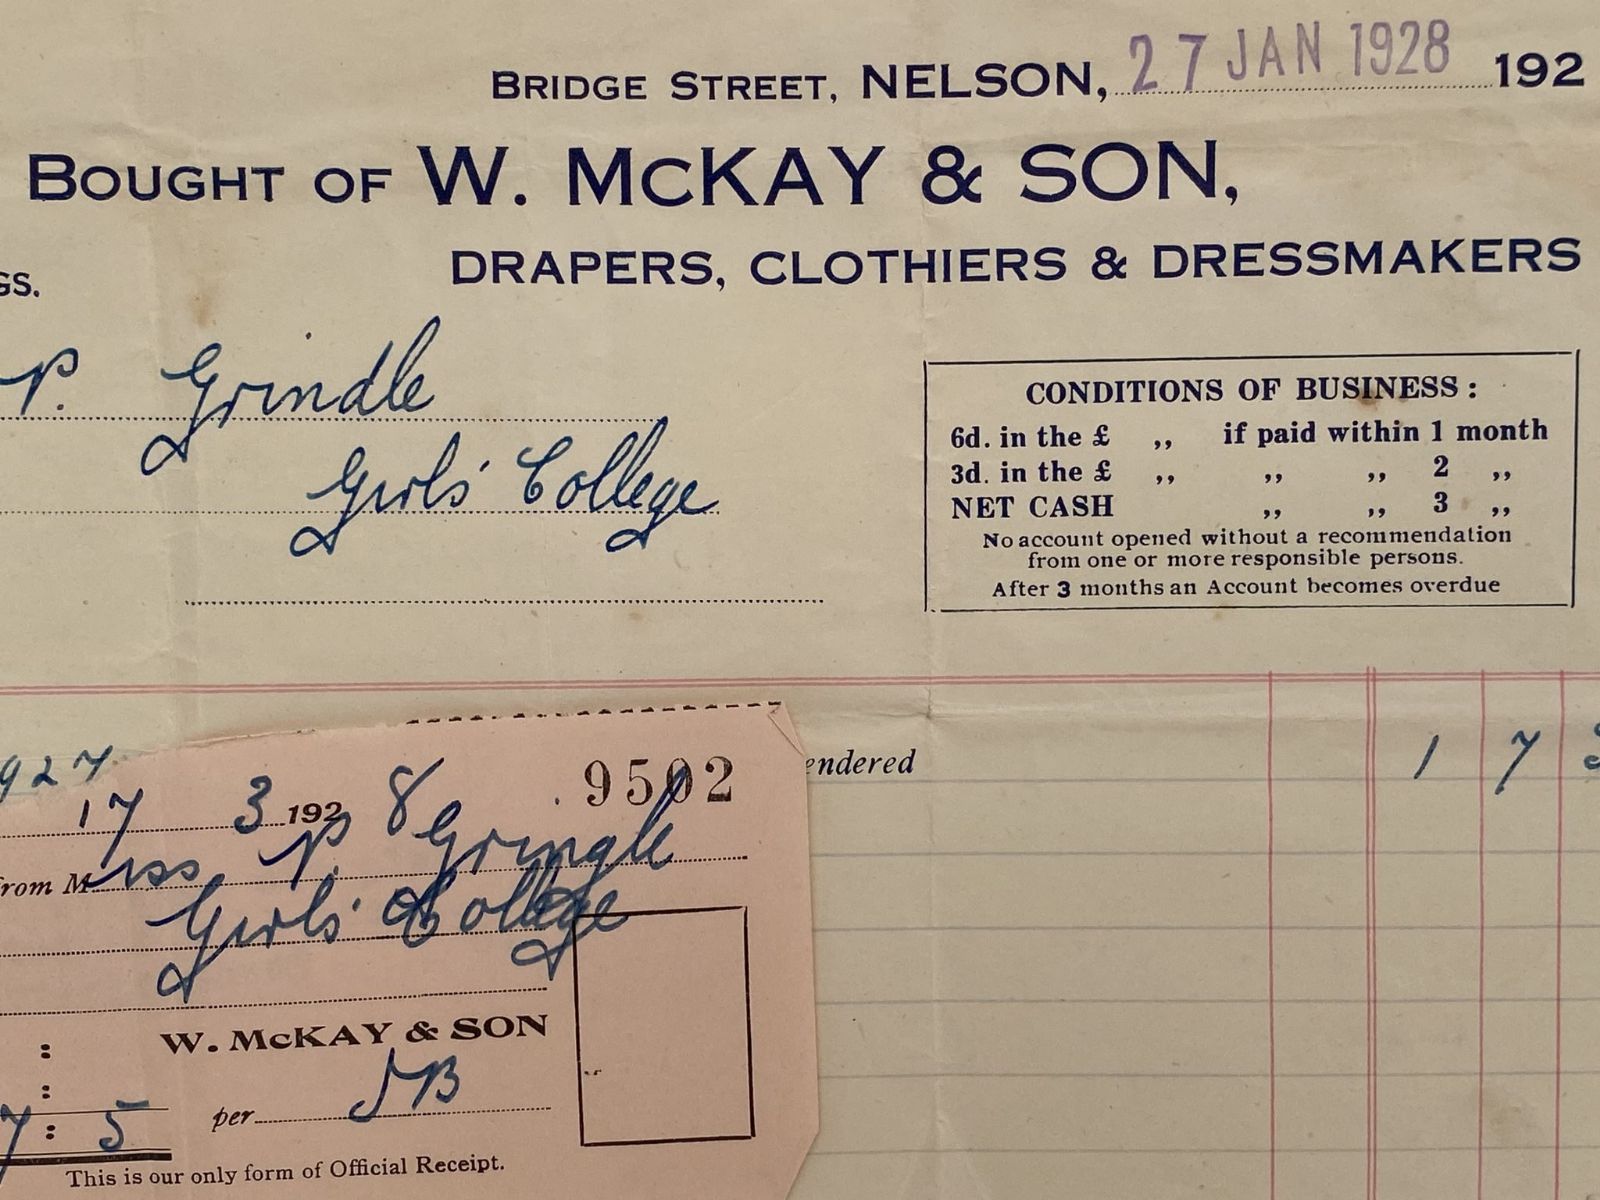 BRIDGE STREET, NELSON, 27 JAN 1928 192
BOUGHT OF W. McKAY & SON,
DRAPERS, CLOTHIERS & DRESSMAKERS
GS.
P. Grindle
Girls' College
CONDITIONS OF BUSINESS:
6d. in the £ ,, if paid within 1 month
3d. in the £ ,, ,, ,, 2 ,,
NET CASH ,, ,, 3 ,,
No account opened without a recommendation
from one or more responsible persons.
After 3 months an Account becomes overdue
927
endered 1 7
9502
17 3 1928
from Miss P. Gringle
Girls' College
:
W. McKAY & SON
:
7 : 5 per JB
This is our only form of Official Receipt.